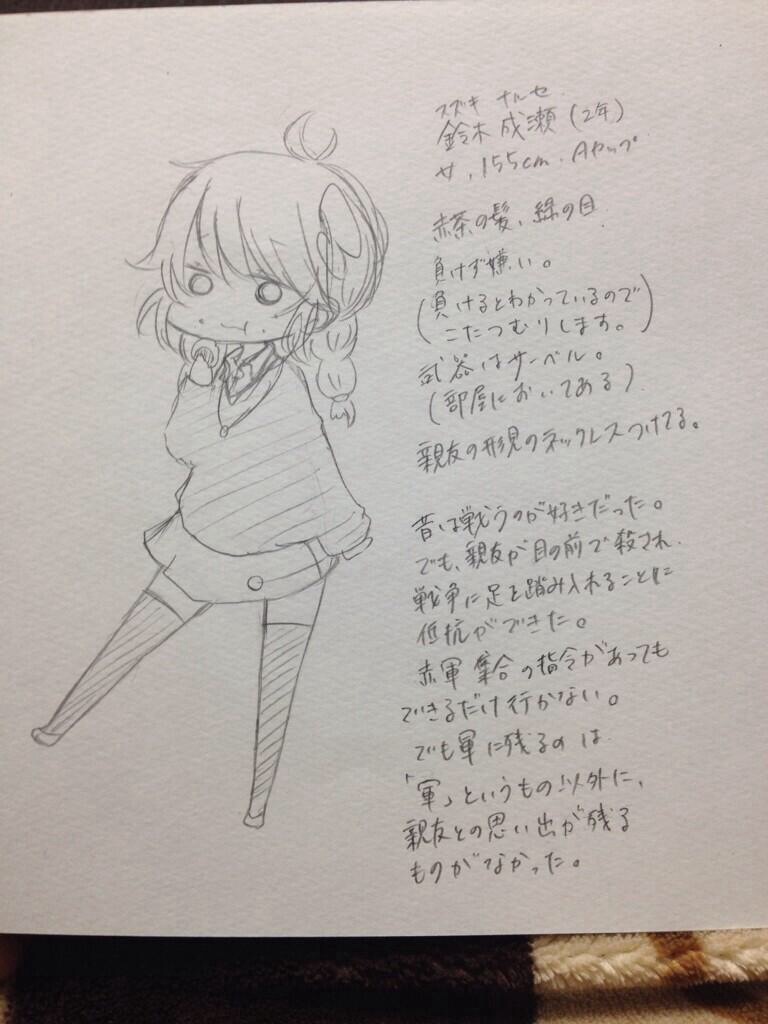 スズキ ナルセ
鈴木 成瀬 (2年)
女、155cm、Aカップ
赤茶の髪、緑の目
負けず嫌い。
(負けるとわかっているので
こたつむりします。)
武器はサーベル。
(部屋においてある)
親友の形見のネックレスつけてる。
昔は戦うのが好きだった。
でも、親友が目の前で殺され、
戦争に足を踏み入れることに
低抗ができた。
赤軍 集合の指令があっても
できるだけ行かない。
でも軍に残るのは
「軍」というもの以外に、
親友との思い出が残る
ものがなかった。